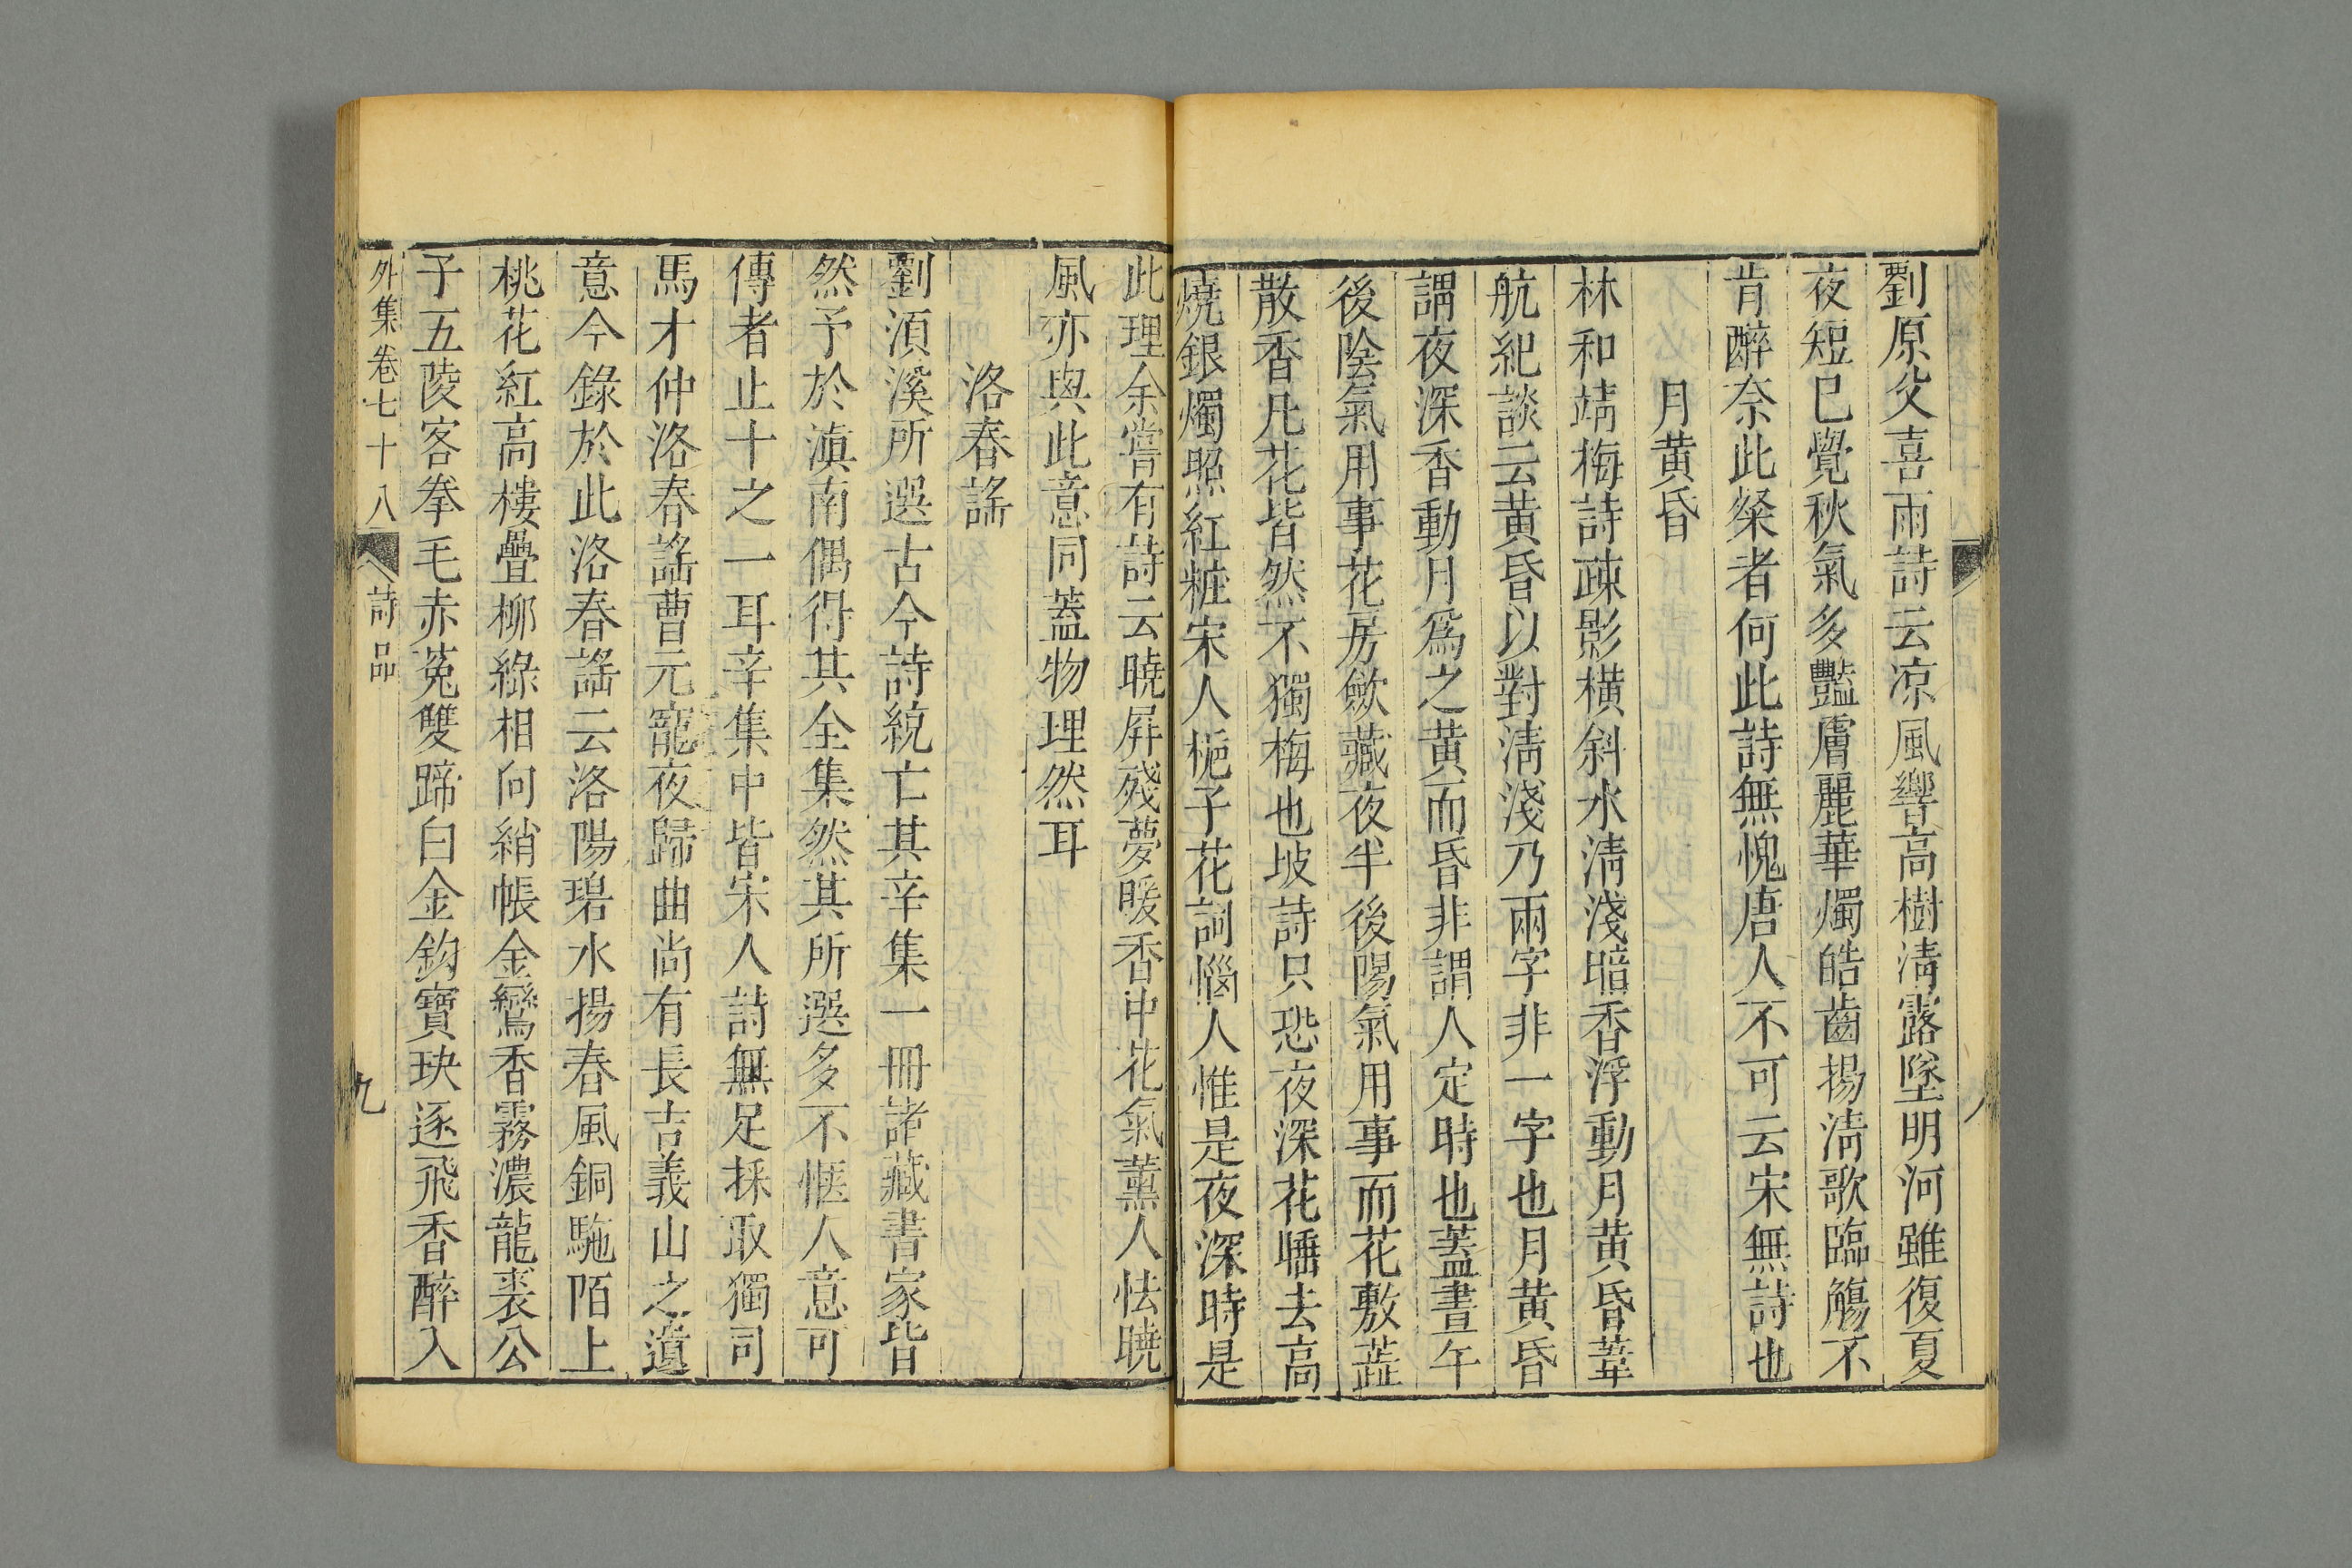 劉原父喜雨詩云凉風響高樹清露墜明河雖復夏
夜短已覺秋氣多豔膚麗華燭皓齒揚清歌臨觴不
肯醉奈此粲者何此詩無愧唐人不可云宋無詩也
月黃昏
林和靖梅詩疎影橫斜水清淺暗香浮動月黃昏葦
航紀談云黃昏以對清淺乃兩字非一字也月黃昏
謂夜深香動月爲之黃而昏非謂人定時也蓋晝午
後陰氣用事花房歛藏夜半後陽氣用事而花敷蕋
散香凡花皆然不獨梅也坡詩只恐夜深花睡去高
燒銀燭照紅粧宋人梔子花詞惱人惟是夜深時是
此理余嘗有詩云曉屏殘夢暖香中花氣薰人怯曉
風亦與此意同蓋物理然耳
洛春謠
劉湏溪所選古今詩統亡其辛集一冊諸藏書家皆
然予於滇南偶得其全集然其所選多不愜人意可
傳者止十之一耳辛集中皆宋人詩無足採取獨司
馬才仲洛春謠曹元寵夜歸曲尚有長吉義山之遺
意今錄於此洛春謠云洛陽碧水揚春風銅駞陌上
桃花紅高樓疊柳綠相向綃帳金鸞香霧濃龍裘公
子五陵客拳毛赤菟雙蹄白金鈎寶玦逐飛香醉入
外集卷七十八 詩品 九